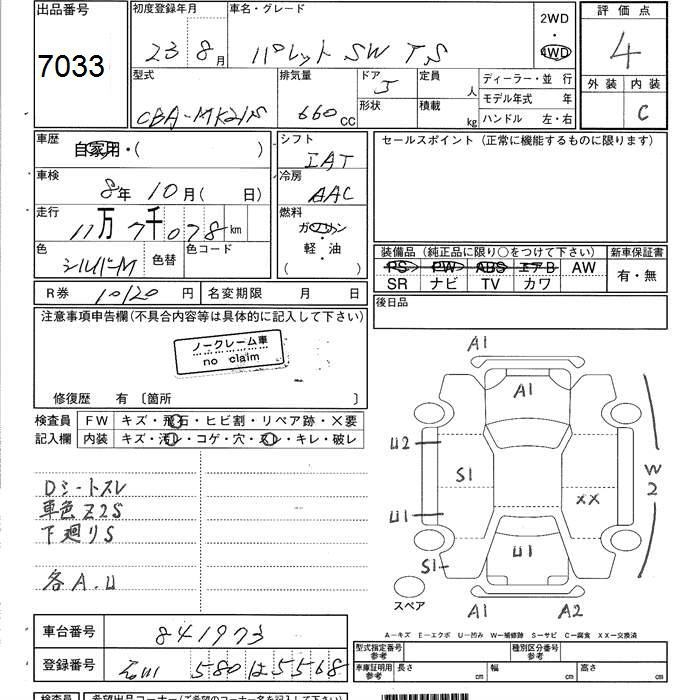 出品番号
7033
初度登録年月
23 8月
車名・グレード
パレット SW TS
2WD
4WD
評価点
4
外装 内装
C
型式
CBA-MK21S
排気量
660cc
ドア
5
形状
定員
人
積載
kg
ディーラー・並行
モデル年式 年
ハンドル 左・右
車歴
自家用・( )
車検
8年 10月( 日)
走行
11万7千078km
色
シルバーM
色替
色コード
シフト
IAT
冷房
AAC
燃料
ガソリン
軽・油
( )
セールスポイント (正常に機能するものに限ります)
装備品 (純正品に限り○をつけて下さい)
新車保証書
PS PW ABS エアB AW
SR ナビ TV カワ
有・無
R券 10120円
名変期限 月 日
後日品
注意事項申告欄(不具合内容等は具体的に記入して下さい)
ノークレーム車
no claim
修復歴 有 〔箇所 〕
検査員
記入欄
FW キズ・飛石・ヒビ割・リペア跡・X要
内装 キズ・汚レ・コゲ・穴・スレ・キレ・破レ
Dシートスレ
車色Z2S
下廻りS
各A.U
A1
A1
U2
S1
XX
W2
U1
S1
U1
スペア
A1
A2
A−キズ E−エクボ U−凹み W−補修跡 S−サビ C−腐食 XX−交換済
車台番号
841973
登録番号
石川 580 は 5568
型式指定番号
参考
種別区分番号
参考
車庫証明用
参考
長さ cm
幅 cm
高さ cm
検査員
希望出品コーナー(ご希望のコーナー名を記入下さい)